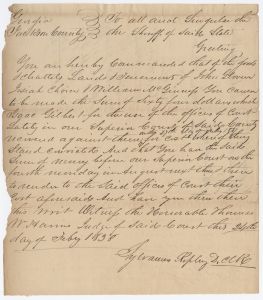 Georgia } To all and Singular the
Jackson County } the Sheriff of Said State
Greeting
You are hereby Commanded that of the goods
& Chattels Lands & Tenements of John
Josiah & William McGinnis You cause
to be made the Sum of Sixty five dollars which
Isaac Gilbert for the use of the officers of Court
Lately in our Superior Court of Said County
recovered against them
Stand Convicted And that You have the Said
Sum of money before our Superior Court on the
fourth monday in August next then there
to render to the Said officers of Court their
Cost aforesaid And have you then there
this Writ Witness the Honorable Thomas
W. Harris Judge of Said Court this 24th
day of Feby 1838
Sylvanus Ripley D. Clk